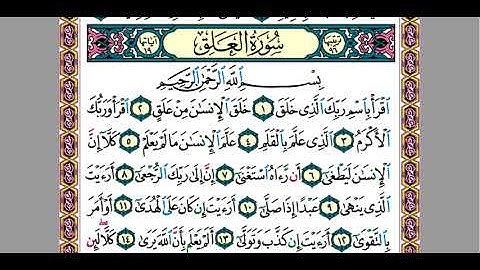 سُورَةُ الْعَلَقِ
بِسْمِ اللَّهِ الرَّحْمَٰنِ الرَّحِيمِ
ٱقۡرَأۡ بِٱسۡمِ رَبِّكَ ٱلَّذِي خَلَقَ ١ خَلَقَ ٱلۡإِنسَٰنَ مِنۡ عَلَقٍ ٢ ٱقۡرَأۡ وَرَبُّكَ
ٱلۡأَكۡرَمُ ٣ ٱلَّذِي عَلَّمَ بِٱلۡقَلَمِ ٤ عَلَّمَ ٱلۡإِنسَٰنَ مَا لَمۡ يَعۡلَمۡ ٥ كَلَّآ إِنَّ
ٱلۡإِنسَٰنَ لَيَطۡغَىٰٓ ٦ أَن رَّءَاهُ ٱسۡتَغۡنَىٰٓ ٧ إِنَّ إِلَىٰ رَبِّكَ ٱلرُّجۡعَىٰٓ ٨ أَرَءَيۡتَ
ٱلَّذِي يَنۡهَىٰ ٩ عَبۡدًا إِذَا صَلَّىٰٓ ١٠ أَرَءَيۡتَ إِن كَانَ عَلَى ٱلۡهُدَىٰٓ ١١ أَوۡ أَمَرَ
بِٱلتَّقۡوَىٰٓ ١٢ أَرَءَيۡتَ إِن كَذَّبَ وَتَوَلَّىٰٓ ١٣ أَلَمۡ يَعۡلَم بِأَنَّ ٱللَّهَ يَرَىٰ ١٤ كَلَّا لَئِن